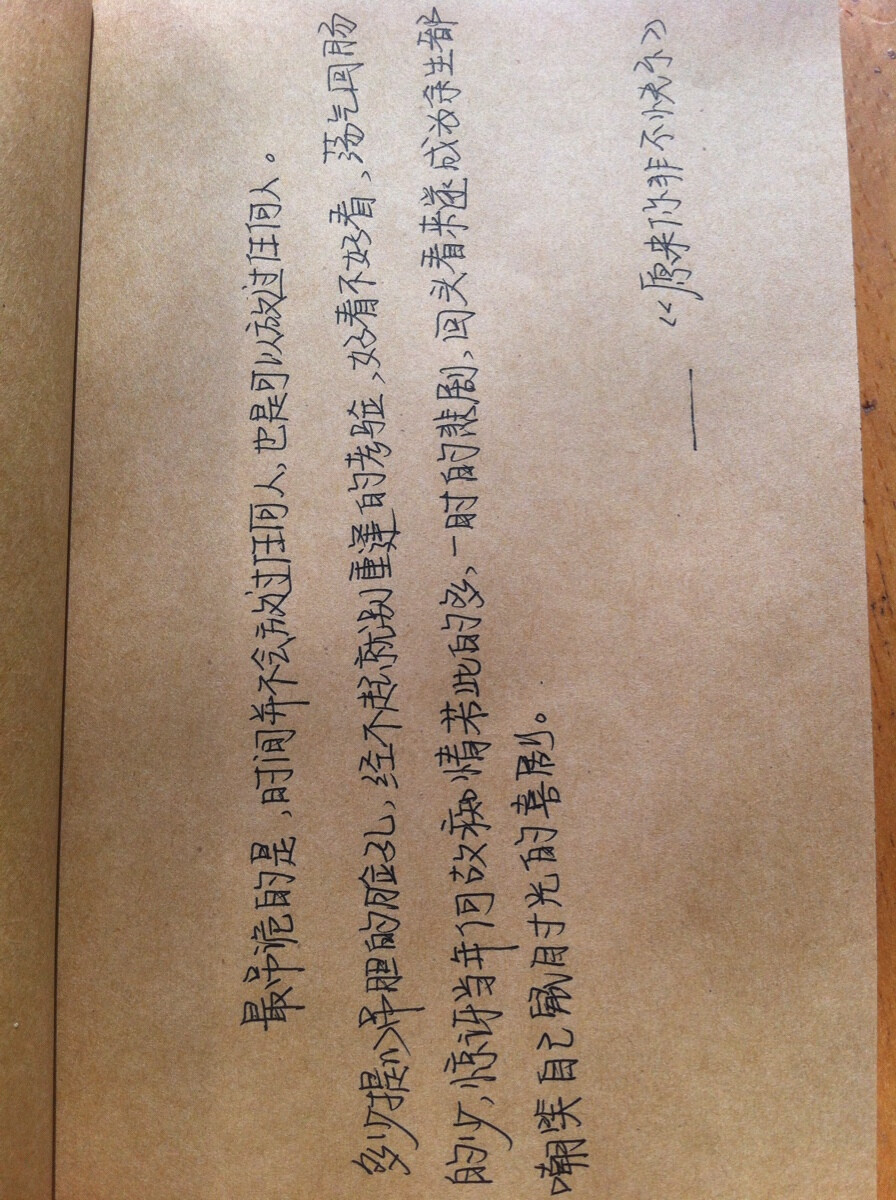 最吊诡的是，时间并不会放过任何人，也是可以放过任何人。
多少提心吊胆的脸孔，经不起久别重逢的考验，好看不好看，荡气回肠
的少，惊讶当年何故痴情若此的多，一时的悲剧，回头看来遂成为余生都
嘲笑自己风月时光的喜剧。
——《原来你非不快乐》